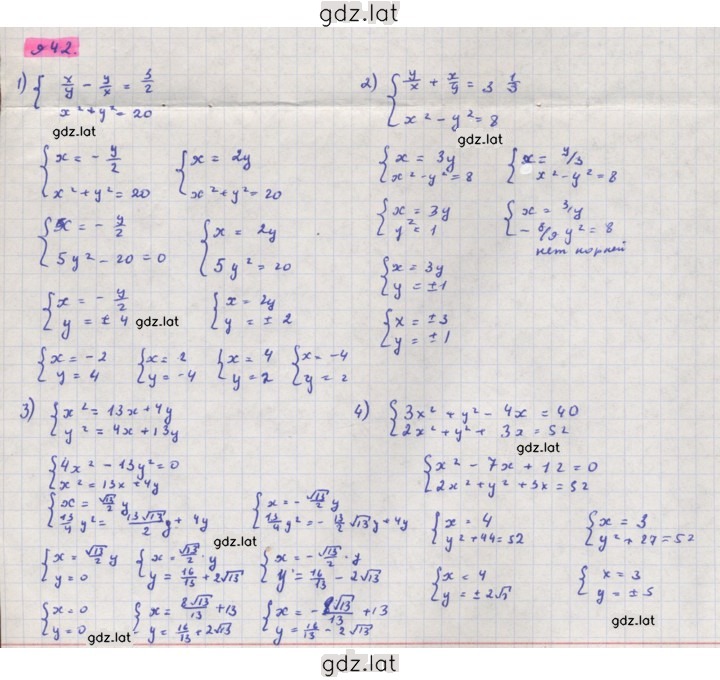 gdz.lat
942.
1) { x/y - y/x = 3/2
x² + y² = 20
gdz.lat
{ x = - y/2
x² + y² = 20
{ x = 2y
x² + y² = 20
{ x = - y/2
5y² - 20 = 0
{ x = 2y
5y² = 20
{ x = - y/2
y = ± 4
gdz.lat
{ x = 2y
y = ± 2
{ x = -2
y = 4
{ x = 2
y = -4
{ x = 4
y = 2
{ x = -4
y = 2
2) { y/x + x/y = 3 1/3
x² - y² = 8
gdz.lat
{ x = 3y
x² - y² = 8
{ x = y/3
x² - y² = 8
{ x = 3y
y² = 1
{ x = 3/y
- 8/9 y² = 8
нет корней
{ x = 3y
y = ±1
{ x = ±3
y = ±1
3) { x² = 13x + 4y
y² = 4x + 13y
{ 4x² - 13y² = 0
x² = 13x + 4y
{ x = √13/2 y
13/4 y² = 13√13/2 y + 4y
{ x = - √13/2 y
13/4 y² = - 13/2 √13 y + 4y
gdz.lat
{ x = √13/2 y
y = 0
{ x = √13/2 · y
y = 16/13 + 2√13
{ x = - √13/2 · y
y = 16/13 - 2√13
{ x = 0
y = 0
gdz.lat
{ x = 8√13/13 + 13
y = 16/13 + 2√13
{ x = - 8√13/13 + 13
y = 16/13 - 2√13
4) { 3x² + y² - 4x = 40
2x² + y² + 3x = 52
gdz.lat
{ x² - 7x + 12 = 0
2x² + y² + 3x = 52
{ x = 4
y² + 44 = 52
{ x = 3
y² + 27 = 52
{ x = 4
y = ± 2√2
{ x = 3
y = ± 5
gdz.lat
gdz.lat